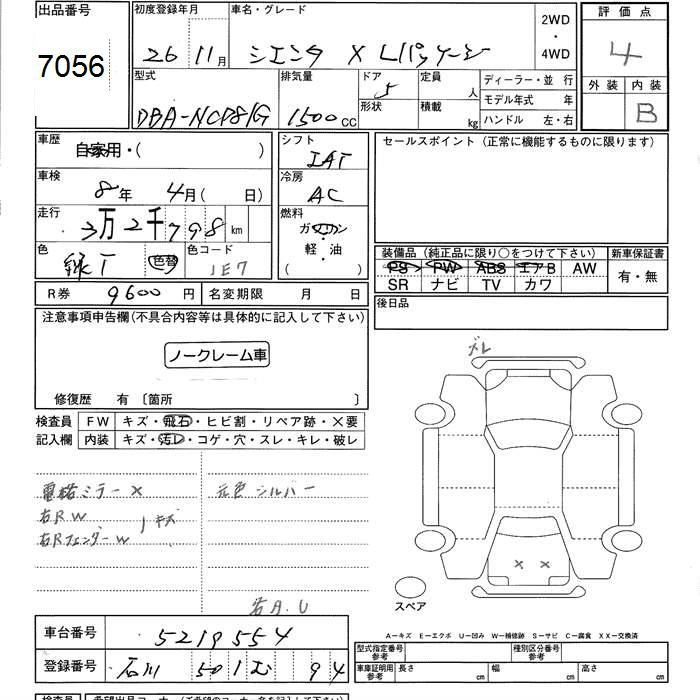 出品番号
7056
初度登録年月
26 11月
車名・グレード
シエンタ X Lパッケージ
2WD
・
4WD
評価点
4
外装 内装
B
型式
DBA-NCP81G
排気量
1500 CC
ドア 5
形状
定員 人
積載 kg
ディーラー・並 行
モデル年式 年
ハンドル 左・右
車歴
自家用・( )
シフト
IAT
セールスポイント (正常に機能するものに限ります)
車検
8年 4月( 日)
冷房
AC
走行
3万2千798 km
燃料
ガソリン
・
軽・油
( )
色
緑T 色替
色コード
1E7
装備品 (純正品に限り○をつけて下さい)
PS PW ABS エアB AW
SR ナビ TV カワ
新車保証書
有・無
R券 9600円
名変期限 月 日
後日品
注意事項申告欄(不具合内容等は具体的に記入して下さい)
ノークレーム車
修復歴 有 〔箇所 〕
検査員
記入欄
FW キズ・飛石・ヒビ割・リペア跡・×要
内装 キズ・汚レ・コゲ・穴・スレ・キレ・破レ
電格ミラー ×
右RW
右Rフェンダー W
キズ
元色 シルバー
A.U
ズレ
× ×
スペア
A-キズ E-エクボ U-凹み W-補修跡 S-サビ C-腐食 XX-交換済
車台番号 5219554
登録番号 石川 501 む 94
型式指定番号
参考
種別区分番号
参考
車庫証明用
参考
長さ cm 幅 cm 高さ cm